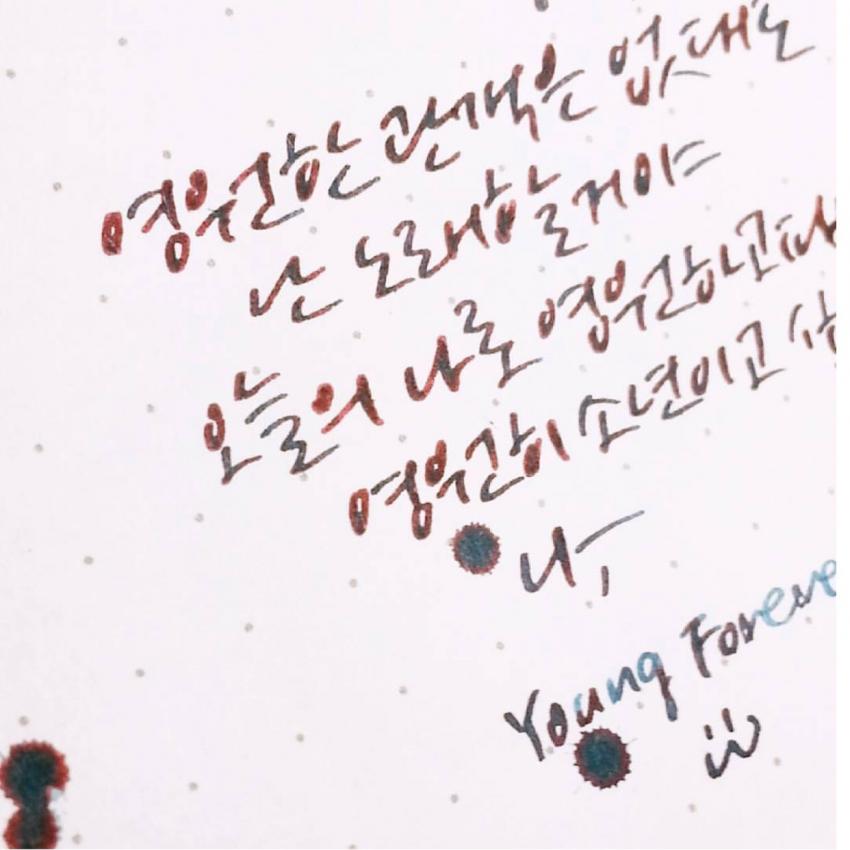 영원한 관객은 없대도
난 노래할거야
오늘의 나로 영원하고파
영원히 소년이고
나,
Young Foreve